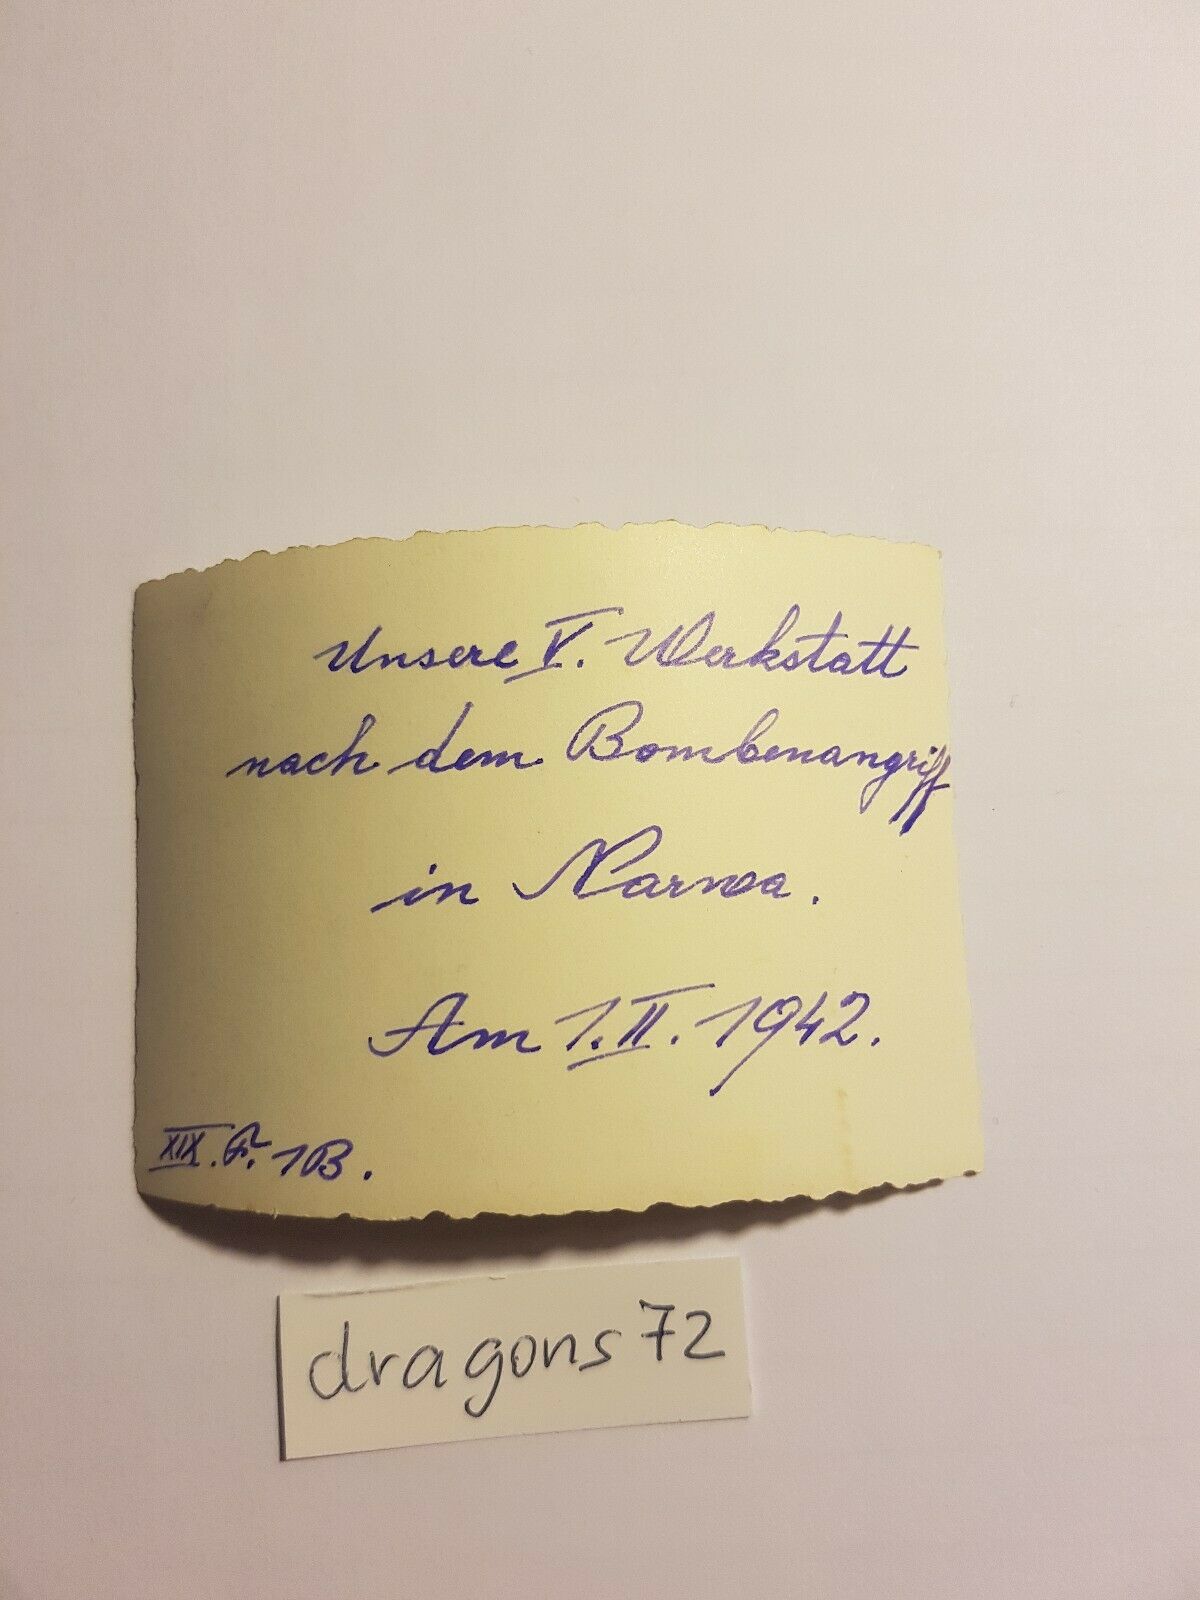 Unsere V. Werkstatt
nach dem Bombenangriff
in Narwa.
Am 1.II.1942.
XIX. F. 1B.
dragons72